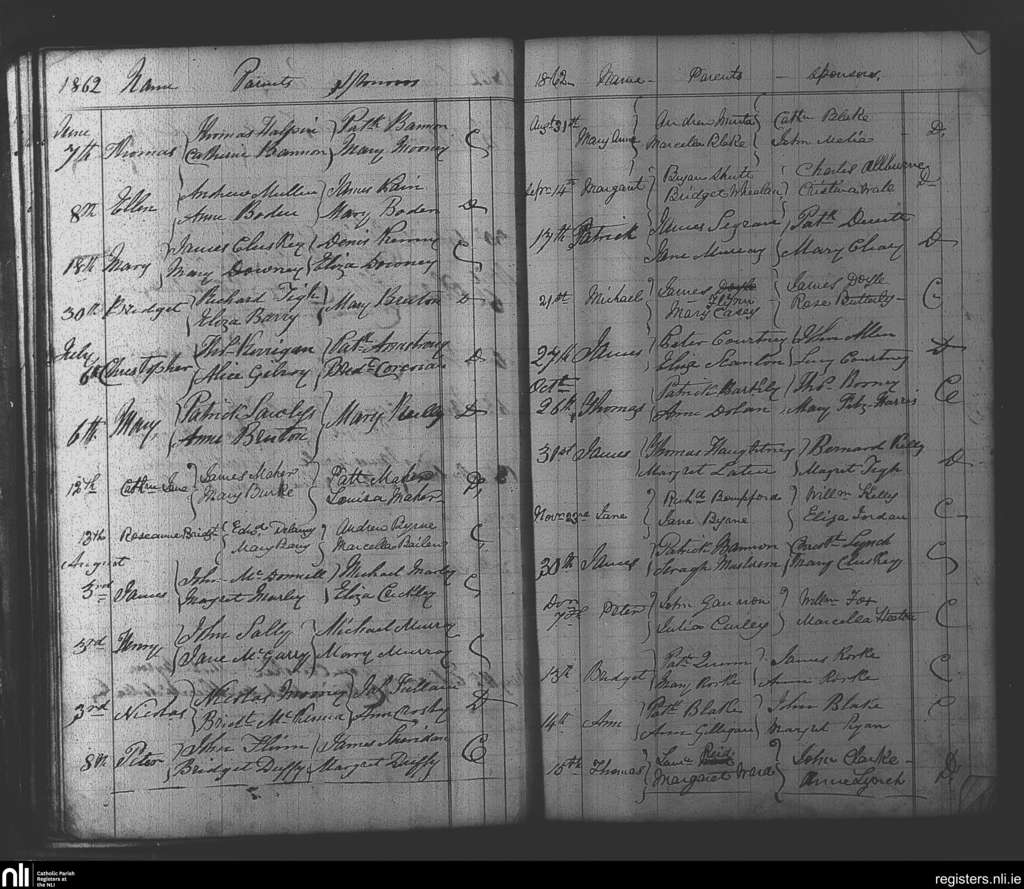 1862 Name Parents Sponsors
June
7th Thomas Thomas Halpin Patk Bannon C
Catherine Bannon Mary Mooney
8th Ellen Andrew Mullen James Kain
Anne Boden Mary Boden D
18th Mary James Cluskey Denis Kenny C
Mary Downey Eliza Downey
30th Bridget Richard Tigh Mary Bruton D
Eliza Barry
July
6th Christopher Thos Kerrigan Patk Armstrong D
Alice Gilroy Corcoran
6th Mary Patrick Mary Reilly D
Anne Bruton
12th Cathne Jane James Maher Patt Maher D
Mary Burke Louisa Maher
13th Roseanne Bridt Edwd Delamy Andrew Byrne C
Mary Marcella
August
3rd James John McDonnell Michael Marley C
Margret Marley Eliza
3rd Henry John Sally Michael Murry C
Jane McGarry Mary Murray
3rd Nicolas Nicolas Mooney Jas D
Bridt McKenna Ann Crosby
8th Peter John Flinn James Sheridan C
Bridget Duffy Margret Duffy
1862 Name Parents Sponsors
Augt 31st Mary Anne Andrew Cathn Blake
Marcella Blake John Melia D
Sepr 14th Margaret Bryan Charles
Bridget Wheelan D
17th Patrick James Segrave Patk
Jane Murray Mary Cleary D
21st Michael James Doyle James Doyle C
Flynn
Mary Casey Rose Butterly
27th James Peter Courtney John Allen
Eliza Scanlon Lucy Courtney D
Octr
26th Thomas Patrick Thos C
Anne Dolan Mary Fitz Harris
31st James Thomas Bernard Kelly
Margret Magret Tigh D
Novr 23rd Jane Richd Willm Kelly
Jane Byrne Eliza Jordan C
30th James Patrick Bannon Christr Lynch C
Mary Cluskey
7th Peter John Gannon Willm Fox C
Julia Curley Marcella
13th Bridget Patk Quinn James Rorke C
Mary Rorke Anne Rorke
14th Ann Patk Blake John Blake C
Ann Gilligan Margret Ryan
15th Thomas Reid John Clarke
Margaret Ward Anne Lynch D
nli
Catholic Parish
Registers at
the NLI
registers.nli.ie